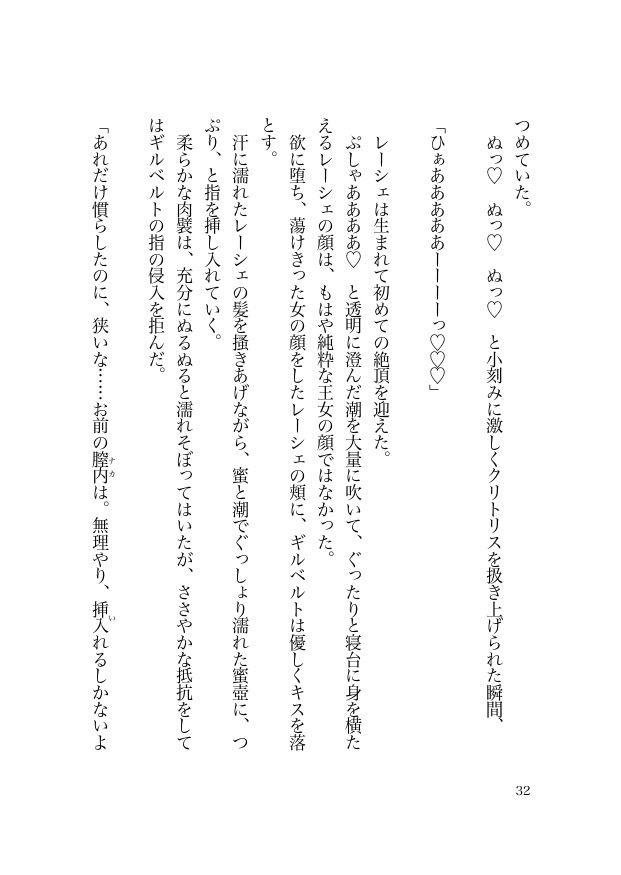 つめていた。
ぬっ♡　ぬっ♡　ぬっ♡　と小刻みに激しくクリトリスを扱き上げられた瞬間、
「ひぁあああああーーーーっ♡♡♡」
レーシェは生まれて初めての絶頂を迎えた。
ぷしゃああああ♡　と透明に澄んだ潮を大量に吹いて、ぐったりと寝台に身を横た
えるレーシェの顔は、もはや純粋な王女の顔ではなかった。
欲に堕ち、蕩けきった女の顔をしたレーシェの頬に、ギルベルトは優しくキスを落
とす。
汗に濡れたレーシェの髪を掻きあげながら、蜜と潮でぐっしょり濡れた蜜壺に、つ
ぷり、と指を挿し入れていく。
柔らかな肉襞は、充分にぬるぬると濡れそぼってはいたが、ささやかな抵抗をして
はギルベルトの指の侵入を拒んだ。
「あれだけ慣らしたのに、狭いな……お前の膣内ナカは。無理やり、挿入いれるしかないよ
32